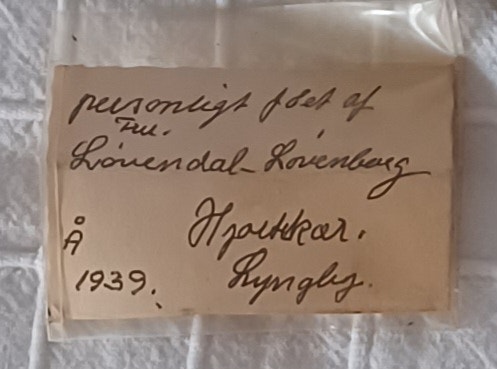 personligt fået af
Fru.
Lövendal-Lövenborg
Hjortkær.
Å Lyngby.
1939.